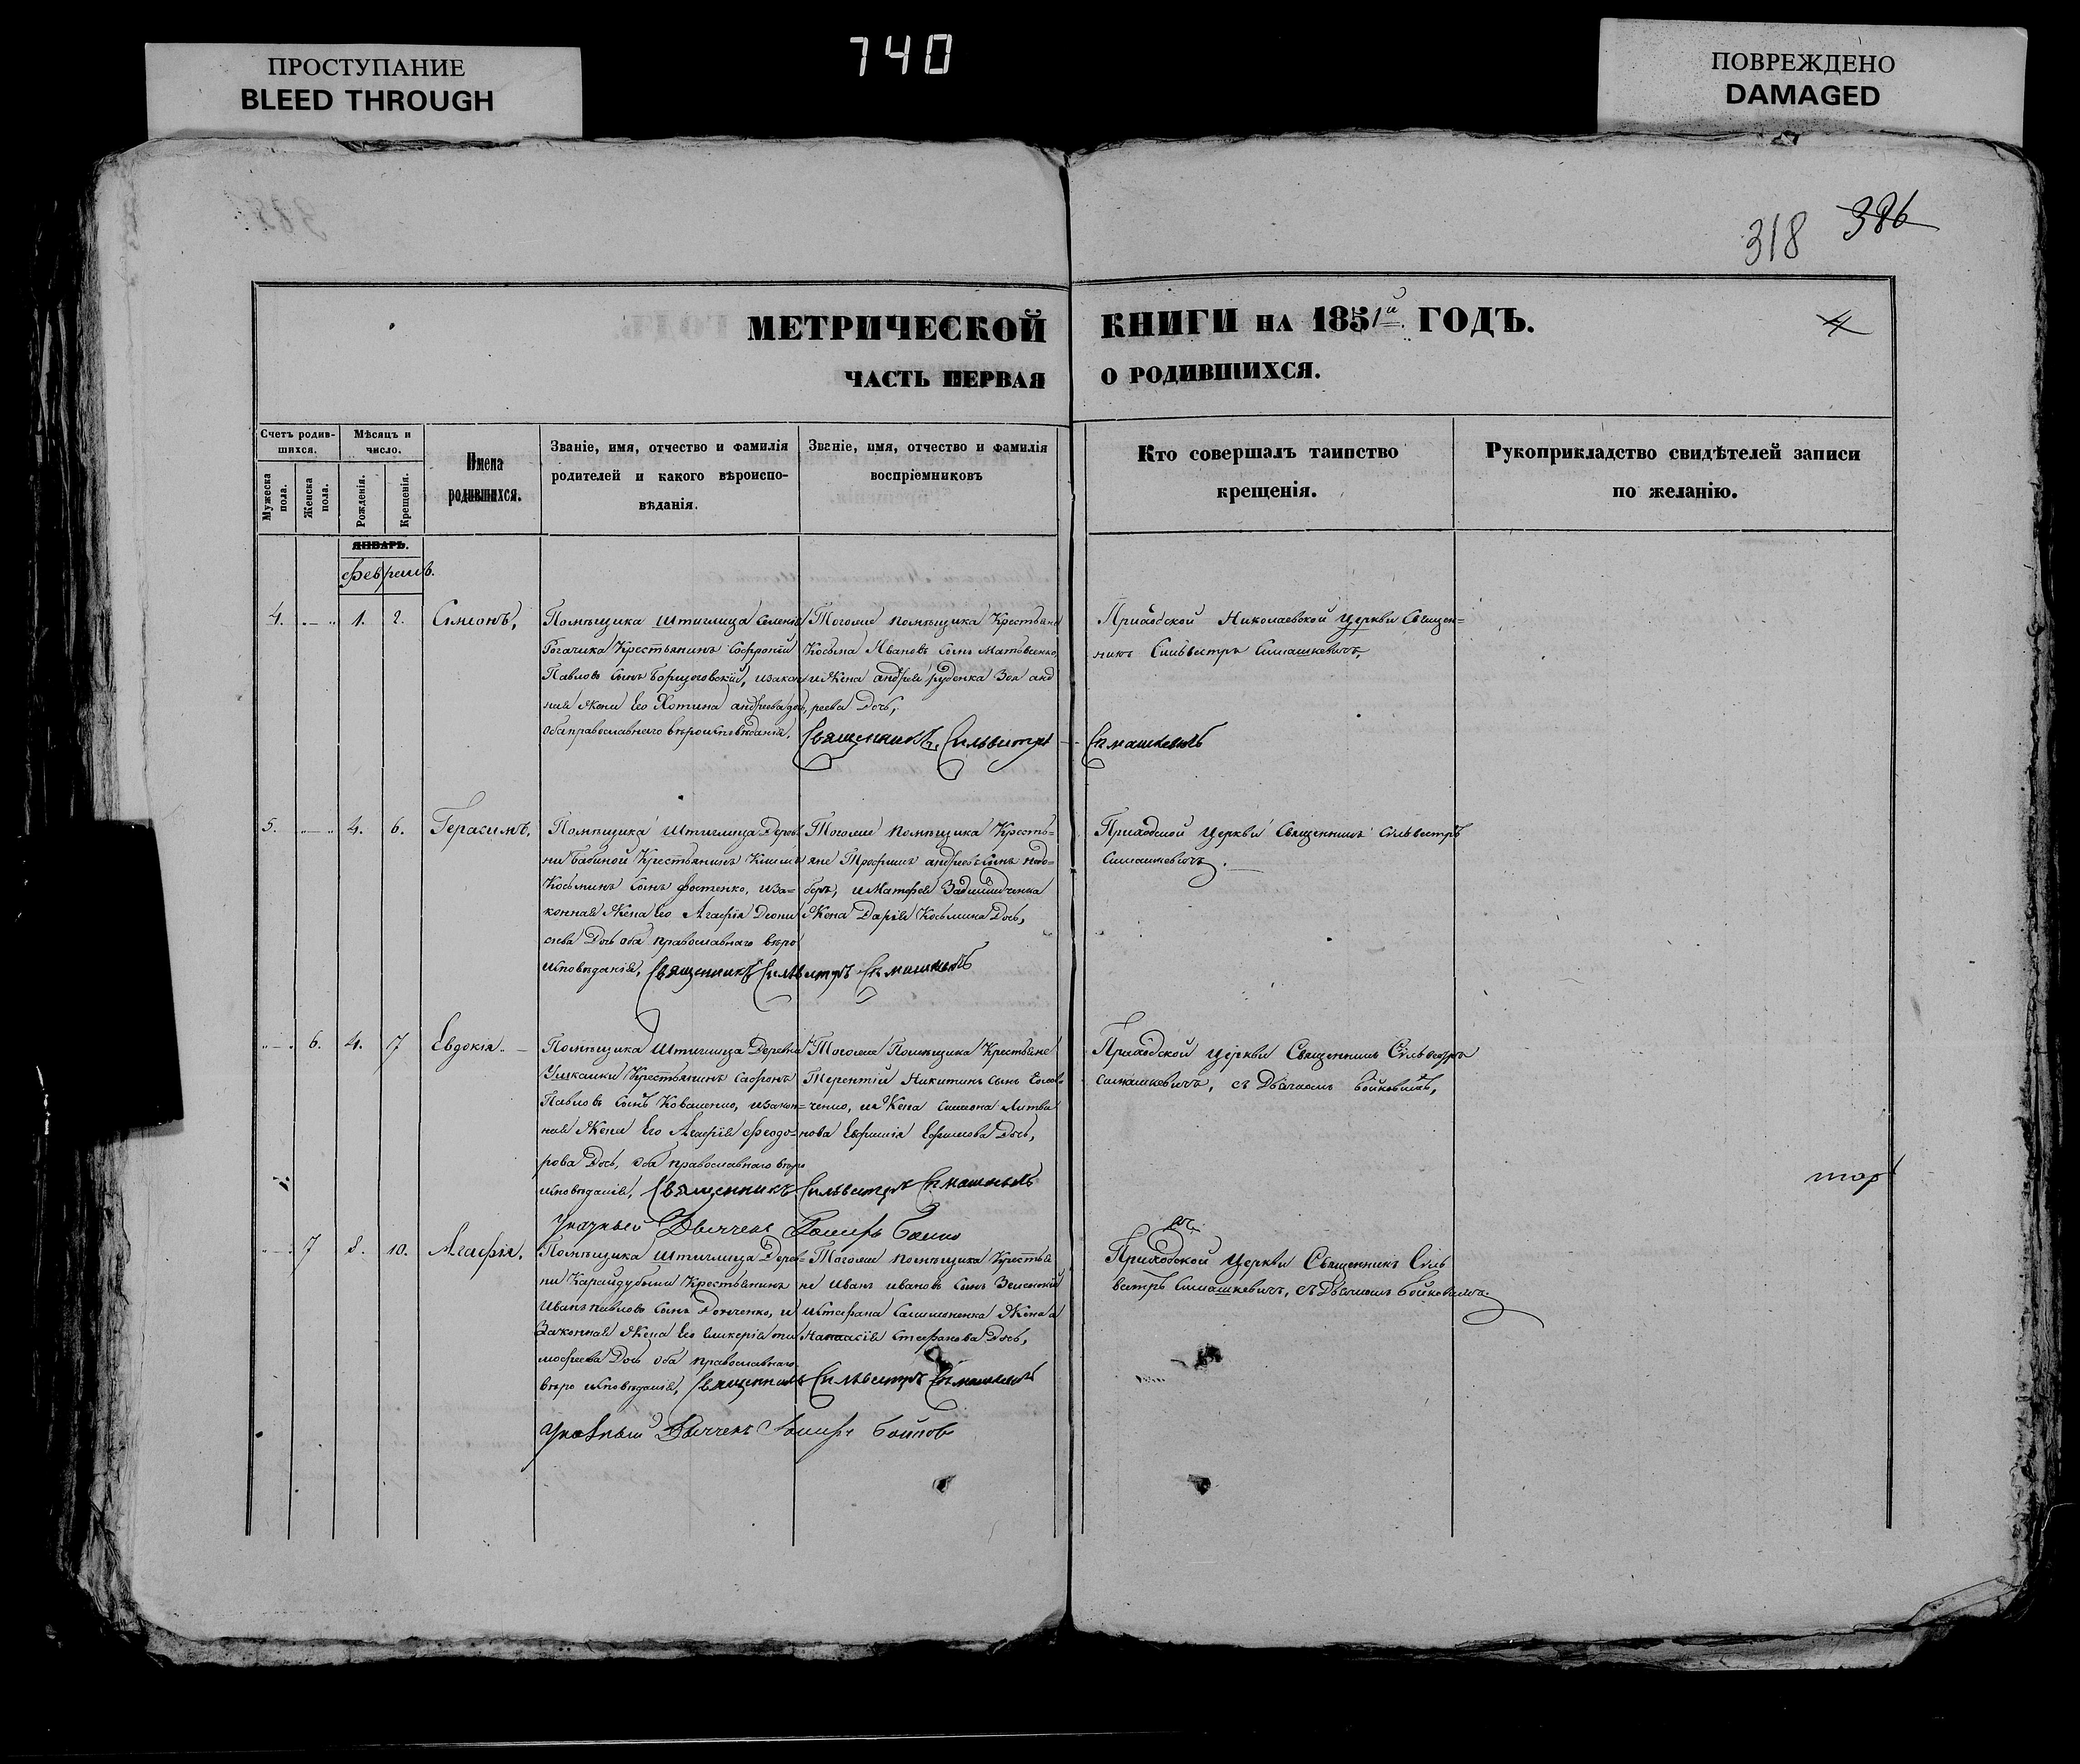 ПРОСТУПАНИЕ
BLEED THROUGH
740
ПОВРЕЖДЕНО
DAMAGED
318 386
МЕТРИЧЕСКОЙ КНИГИ НА 1851й ГОДЪ.
4
ЧАСТЬ ПЕРВАЯ О РОДИВШИХСЯ.
Счетъ родив-
шихся.
Мужеска пола.
Женска пола.
Мѣсяцъ и
число.
Рожденія.
Крещенія.
Имена
родившихся.
Званіе, имя, отчество и фамилія
родителей и какого вѣроиспо-
вѣданія.
Званіе, имя, отчество и фамилія
воспріемниковъ
Кто совершалъ таинство
крещенія.
Рукоприкладство свидѣтелей записи
по желанію.
ЯНВАРЬ.
февраль.
4. 1. 2. Симеонъ,
Помѣщика Штиглица Селенія
Рогачика Крестьянинъ Софроній
Павловъ сынъ, изакон
ная Жена его Хотина андреева дочь,
Оба православнаго вѣроисповѣданія,
Тогоже помѣщика Крестьяне
Косьма Ивановъ сынъ Матвѣенко,
иЖена андрея руденка Зоя анд
реева Дочь,
Священникъ Сильвестръ Симашкевичъ
Приходской Николаевской Церкви Священ=
никъ Сильвестръ Симашкевичъ,
5. 4. 6. Герасимъ,
Помѣщика Штиглица Дерев
ни Бабиной Крестьянинъ
Косьминъ сынъ Фостенко, иза=
конная Жена его Агафія Діони
сиева Дочь оба православнаго вѣро
исповѣданія, Священникъ Сильвестръ Симашкевичъ
Тогоже помѣщика Кресть=
яне Трофимъ андреевъ сынъ
и Матфея
Жена Дарія Косьмина Дочь,
Приходской Церкви Священникъ Сильвестръ
Симашкевичъ.
6. 4. 7 Евдокія.
Помѣщика Штиглица Деревни
Ушкалки Крестьянинъ Сафронъ
Павловъ сынъ Коваленко, изакон=
ная Жена Его Агафія Феодо=
рова Дочь, оба православнаго вѣро
исповѣданія, Священникъ Сильвестръ Симашкевичъ
Тогоже Помѣщика Крестьяне
Терентій Никитинъ сынъ
ченко, иЖена Симеона Литви
нова Евфимія Ефимова Дочь,
Приходской Церкви Священникъ Сильвестръ
Симашкевичъ, съ Дьячкомъ Бойковымъ,
Указный Дьячекъ Бойко
7 8. 10. Агафія,
Помѣщика Штиглица Дерев=
ни Карайдубыни Крестьянинъ
Иванъ павловъ сынъ Донченко, и
Законная Жена его Гликерія ти
мофеева Дочь оба православнаго
вѣро исповѣданія, Священникъ Сильвестръ Симашкевичъ
Тогоже помѣщика Крестья
не Иванъ ивановъ сынъ Зеленскій
и Стефана Самойленка Жена а
настасія Стефанова Дочь,
Приходской Церкви Священникъ Силь
вестръ Симашкевичъ, съ Дьячкомъ Бойковымъ.
Указный Дьячекъ Бойковъ